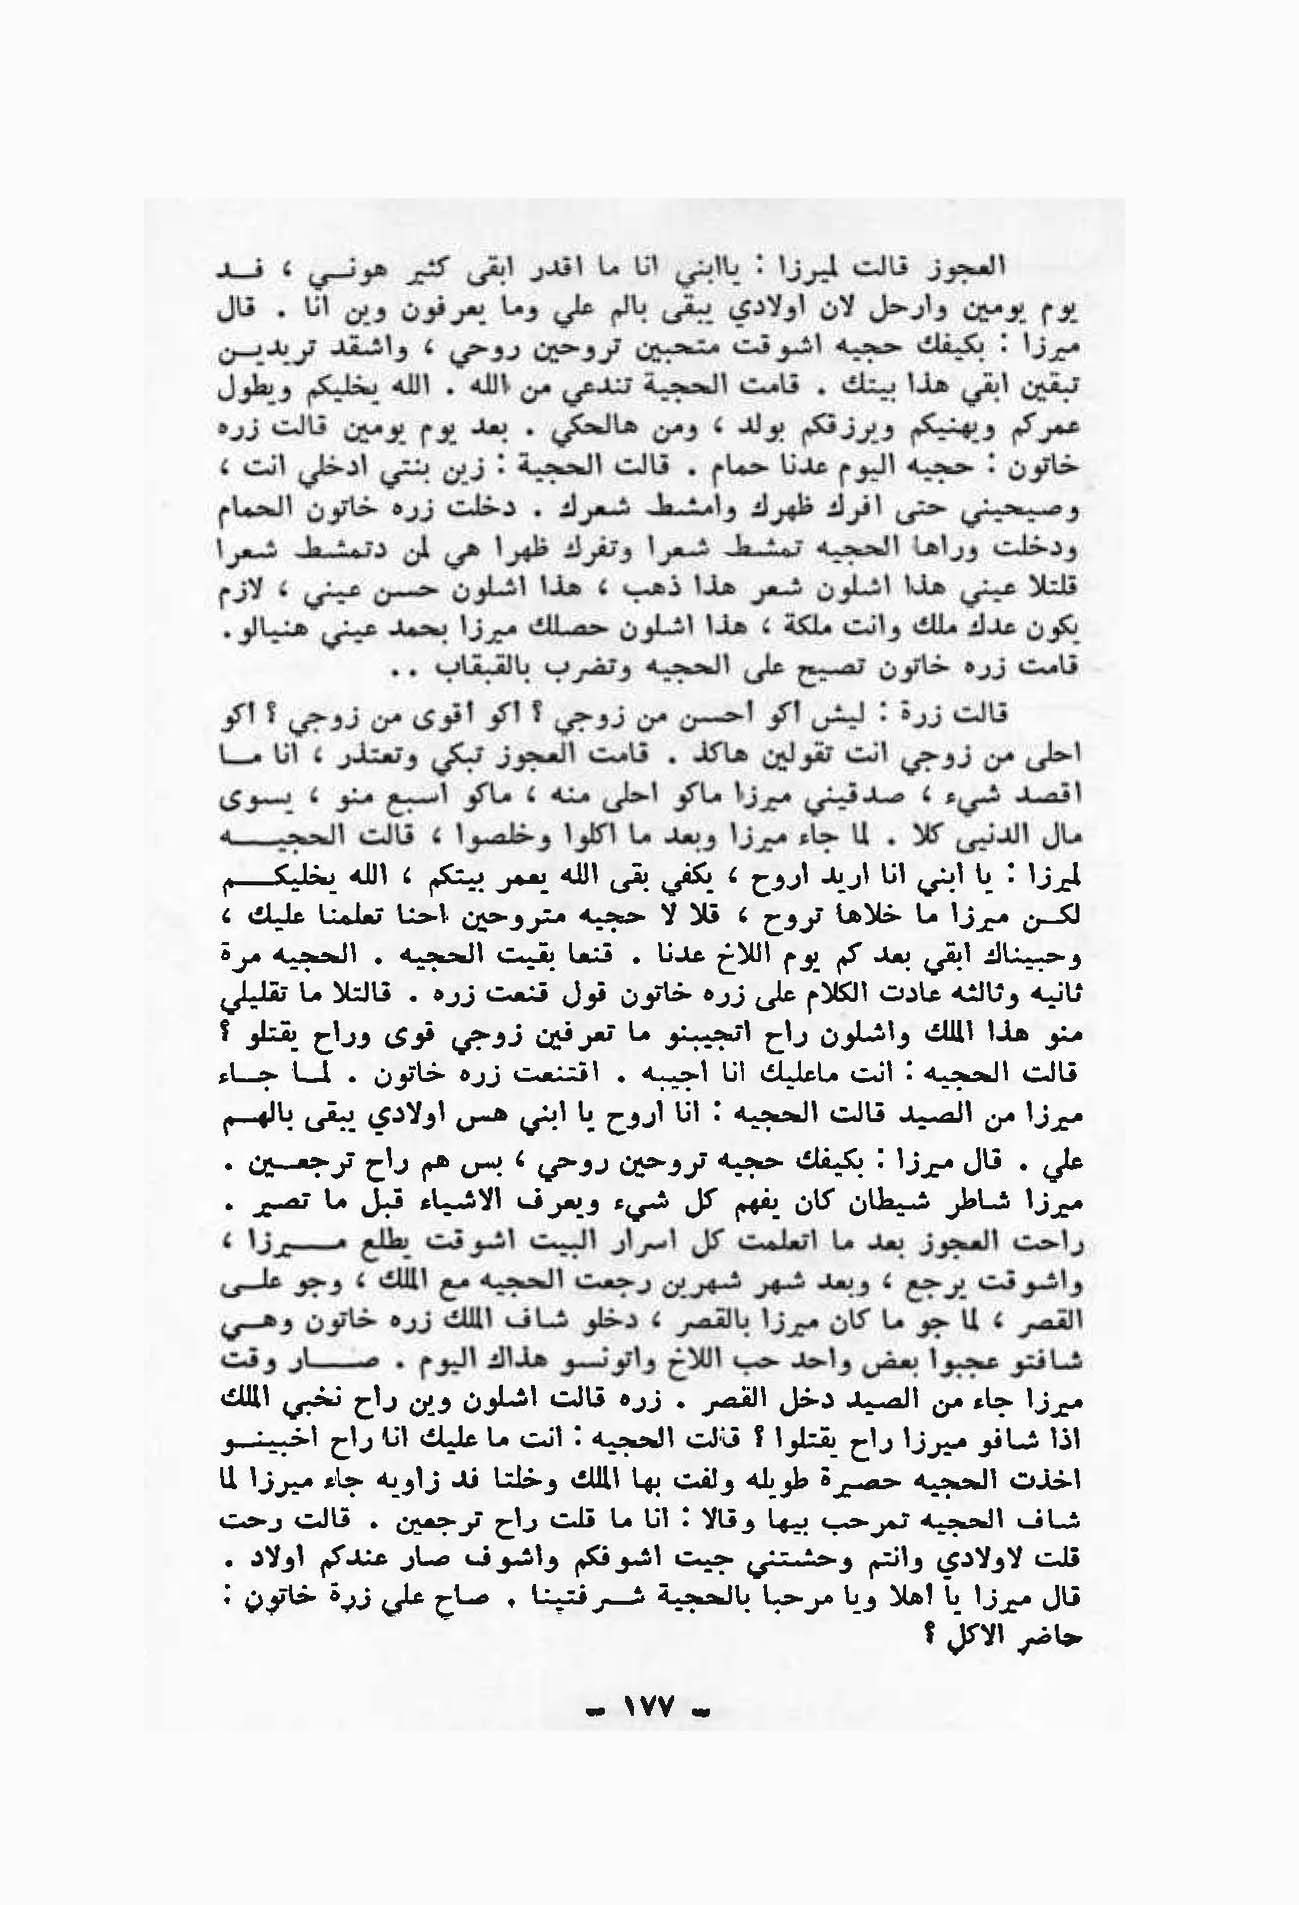 العجوز قالت لميرزا : ياابني انا ما اقدر ابقى كثير هوني ، فد
يوم يومين وارحل لان اولادي يبقى بالم علي وما يعرفون وين انا . قال
ميرزا : بكيفك حجيه اشوقت متحبين تروحين روحي ، واشقد تريدين
تبقين ابقي هذا بيتك . قامت الحجية تندعي من الله . الله يخليكم ويطول
عمركم ويهنيكم ويرزقكم بولد ، ومن هالحكي . بعد يوم يومين قالت زره
خاتون : حجيه اليوم عدنا حمام . قالت الحجية : زين بنتي ادخلي انت ،
وصيحيني حتى افرك ظهرك وامشط شعرك . دخلت زره خاتون الحمام
ودخلت وراها الحجيه تمشط شعرا وتفرك ظهرا هي لمن دتمشط شعرا
قلتلا عيني هذا اشلون شعر هذا ذهب ، هذا اشلون حسن عيني ، لازم
يكون عدك ملك وانت ملكة ، هذا اشلون حصلك ميرزا بحمد عيني هنيالو .
قامت زره خاتون تصيح على الحجيه وتضرب بالقبقاب ..
قالت زرة : ليش اكو احسن من زوجي ؟ اكو اقوى من زوجي ؟ اكو
احلى من زوجي انت تقولين هاكذ . قامت العجوز تبكي وتعتذر ، انا ما
اقصد شيء ، صدقيني ميرزا ماكو احلى منه ، ماكو اسبع منو ، يسوى
مال الدنيى كلا . لما جاء ميرزا وبعد ما اكلوا وخلصوا ، قالت الحجيه
لميرزا : يا ابني انا اريد اروح ، يكفي بقى الله يعمر بيتكم ، الله يخليكم
لكن ميرزا ما خلاها تروح ، قلا لا حجيه متروحين احنا تعلمنا عليك ،
وحبيناك ابقي بعد كم يوم اللاخ عدنا . قنعا بقيت الحجيه . الحجيه مرة
ثانيه وثالثه عادت الكلام على زره خاتون قول قنعت زره . قالتلا ما تقليلي
منو هذا الملك واشلون راح اتجيبنو ما تعرفين زوجي قوى وراح يقتلو ؟
قالت الحجيه : انت ماعليك انا اجيبه . اقتنعت زره خاتون . لما جاء
ميرزا من الصيد قالت الحجيه : انا اروح يا ابني هس اولادي يبقى بالهم
علي . قال ميرزا : بكيفك حجيه تروحين روحي ، بس هم راح ترجعين .
ميرزا شاطر شيطان كان يفهم كل شيء ويعرف الاشياء قبل ما تصير .
راحت العجوز بعد ما اتعلمت كل اسرار البيت اشوقت يطلع ميرزا ،
واشوقت يرجع ، وبعد شهر شهرين رجعت الحجيه مع الملك ، وجو على
القصر ، لما جو ما كان ميرزا بالقصر ، دخلو شاف الملك زره خاتون وهي
شافتو عجبوا بعض واحد حب اللاخ واتونسو هذاك اليوم . صار وقت
ميرزا جاء من الصيد دخل القصر . زره قالت اشلون وين راح نخبي الملك
اذا شافو ميرزا راح يقتلوا ؟ قالت الحجيه : انت ما عليك انا راح اخبينو
اخذت الحجيه حصيرة طويله ولفت بها الملك وخلتا فد زاويه جاء ميرزا لما
شاف الحجيه تمرحب بيها وقالا : انا ما قلت راح ترجعين . قالت رحت
قلت لاولادي وانتم وحشتني جيت اشوفكم واشوف صار عندكم اولاد .
قال ميرزا يا أهلا ويا مرحبا بالحجية شرفتينا . صاح علي زرة خاتون :
حاضر الاكل ؟
- ١٧٧ -